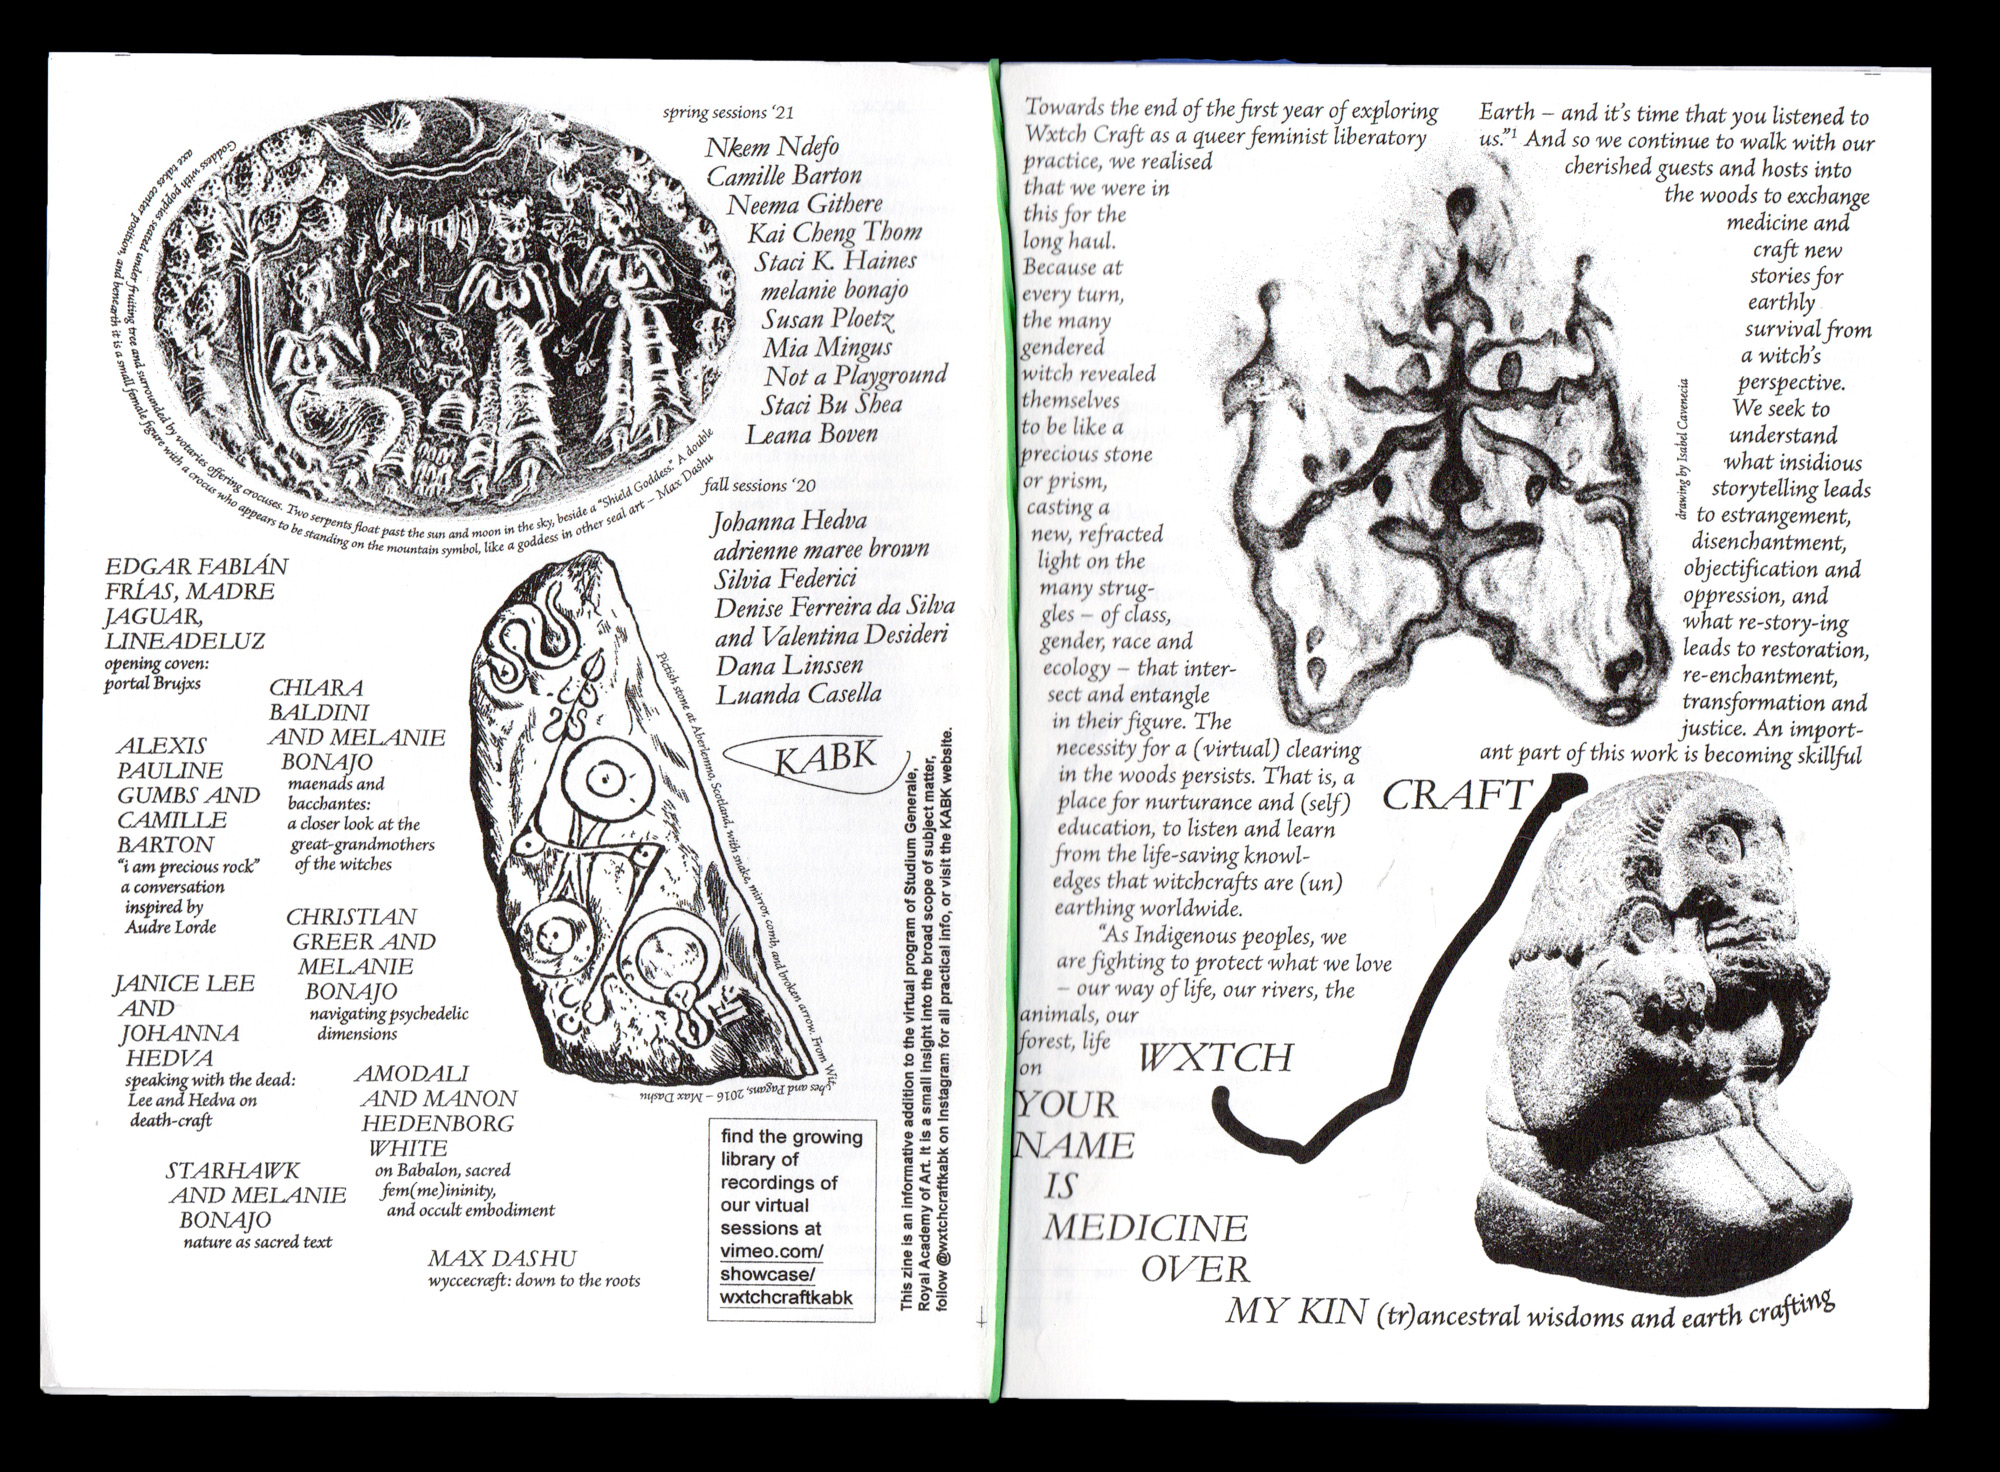 Goddess with poppies seated under fruiting tree and surrounded by votaries offering crocuses. Two serpents float past the sun and moon in the sky, beside a "Shield Goddess." A double
axe takes center position, and beneath it is a small female figure with a crocus who appears to be standing on the mountain symbol, like a goddess in other seal art – Max Dashu
spring sessions ‘21
Nkem Ndefo
Camille Barton
Neema Githere
Kai Cheng Thom
Staci K. Haines
melanie bonajo
Susan Ploetz
Mia Mingus
Not a Playground
Staci Bu Shea
Leana Boven
fall sessions ‘20
Johanna Hedva
adrienne maree brown
Silvia Federici
Denise Ferreira da Silva
and Valentina Desideri
Dana Linssen
Luanda Casella
KABK
EDGAR FABIÁN
FRÍAS, MADRE
JAGUAR,
LINEADELUZ
opening coven:
portal Brujxs
CHIARA
BALDINI
AND MELANIE
BONAJO
maenads and
bacchantes:
a closer look at the
great-grandmothers
of the witches
ALEXIS
PAULINE
GUMBS AND
CAMILLE
BARTON
“i am precious rock”
a conversation
inspired by
Audre Lorde
CHRISTIAN
GREER AND
MELANIE
BONAJO
navigating psychedelic
dimensions
JANICE LEE
AND
JOHANNA
HEDVA
speaking with the dead:
Lee and Hedva on
death-craft
AMODALI
AND MANON
HEDENBORG
WHITE
on Babalon, sacred
fem(me)ininity,
and occult embodiment
STARHAWK
AND MELANIE
BONAJO
nature as sacred text
MAX DASHU
wyccecræft: down to the roots
Pictish stone at Aberlemno, Scotland, with snake, mirror, comb, and broken arrow. From Witches and Pagans, 2016 – Max Dashu
find the growing
library of
recordings of
our virtual
sessions at
vimeo.com/
showcase/
wxtchcraftkabk
This zine is an informative addition to the virtual program of Studium Generale,
Royal Academy of Art. It is a small insight into the broad scope of subject matter,
follow @wxtchcraftkabk on Instagram for all practical info, or visit the KABK website.
Towards the end of the first year of exploring
Wxtch Craft as a queer feminist liberatory
practice, we realised
that we were in
this for the
long haul.
Because at
every turn,
the many
gendered
witch revealed
themselves
to be like a
precious stone
or prism,
casting a
new, refracted
light on the
many strug-
gles – of class,
gender, race and
ecology – that inter-
sect and entangle
in their figure. The
necessity for a (virtual) clearing
in the woods persists. That is, a
place for nurturance and (self)
education, to listen and learn
from the life-saving knowl-
edges that witchcrafts are (un)
earthing worldwide.
“As Indigenous peoples, we
are fighting to protect what we love
– our way of life, our rivers, the
animals, our
forest, life
on
Earth – and it’s time that you listened to
us.”1 And so we continue to walk with our
cherished guests and hosts into
the woods to exchange
medicine and
craft new
stories for
earthly
survival from
a witch’s
perspective.
We seek to
understand
what insidious
storytelling leads
to estrangement,
disenchantment,
objectification and
oppression, and
what re-story-ing
leads to restoration,
re-enchantment,
transformation and
justice. An import-
ant part of this work is becoming skillful
drawing by Isabel Cavenecia
CRAFT
WXTCH
YOUR
NAME
IS
MEDICINE
OVER
MY KIN (tr)ancestral wisdoms and earth crafting